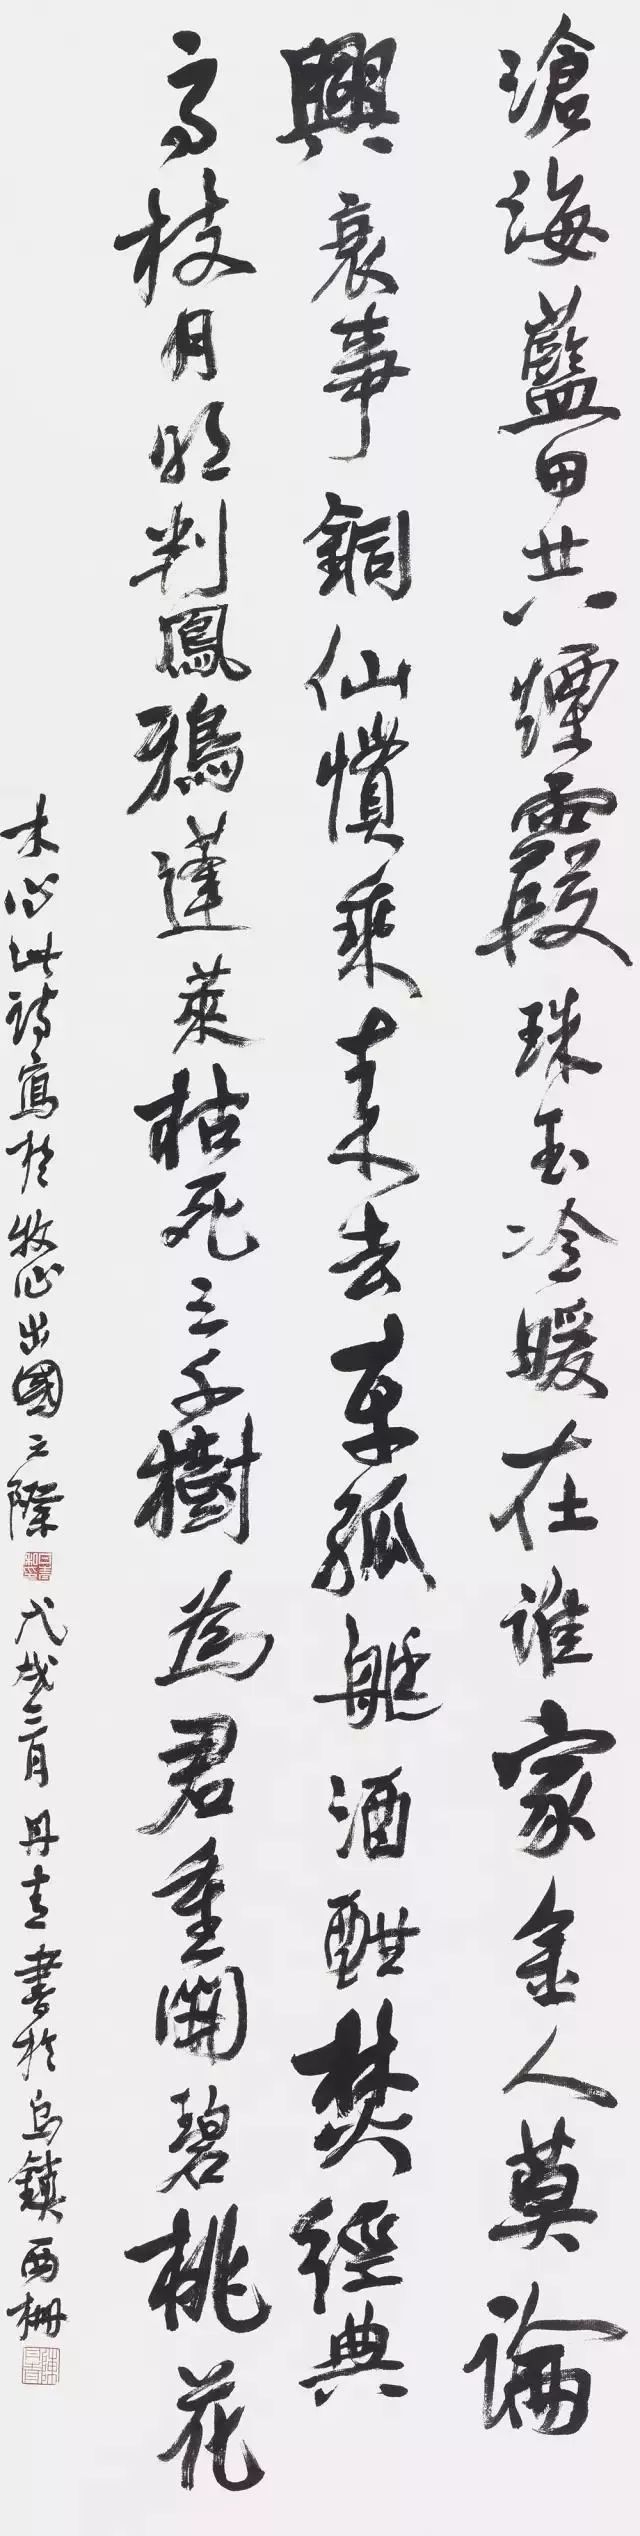 滄海藍田共煙霞珠玉冷暖在誰家金人莫論
興衰事銅仙慣乘來去車孤艇酒酣焚經典
高枝月明判鳳鴉蓬萊枯死三千樹為君重滿碧桃花
木心此詩寫於牧心出國之際 戊戌三月丹青書於烏鎮西柵
陳丹青